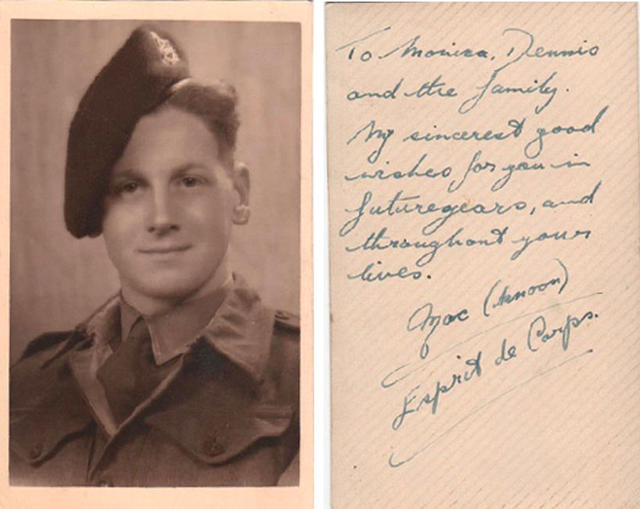 To Monica, Dennis
and the family.
My sincerest good
wishes for you in
future years, and
throughout your
lives.
Mac (Annon)
Esprit de Corps.